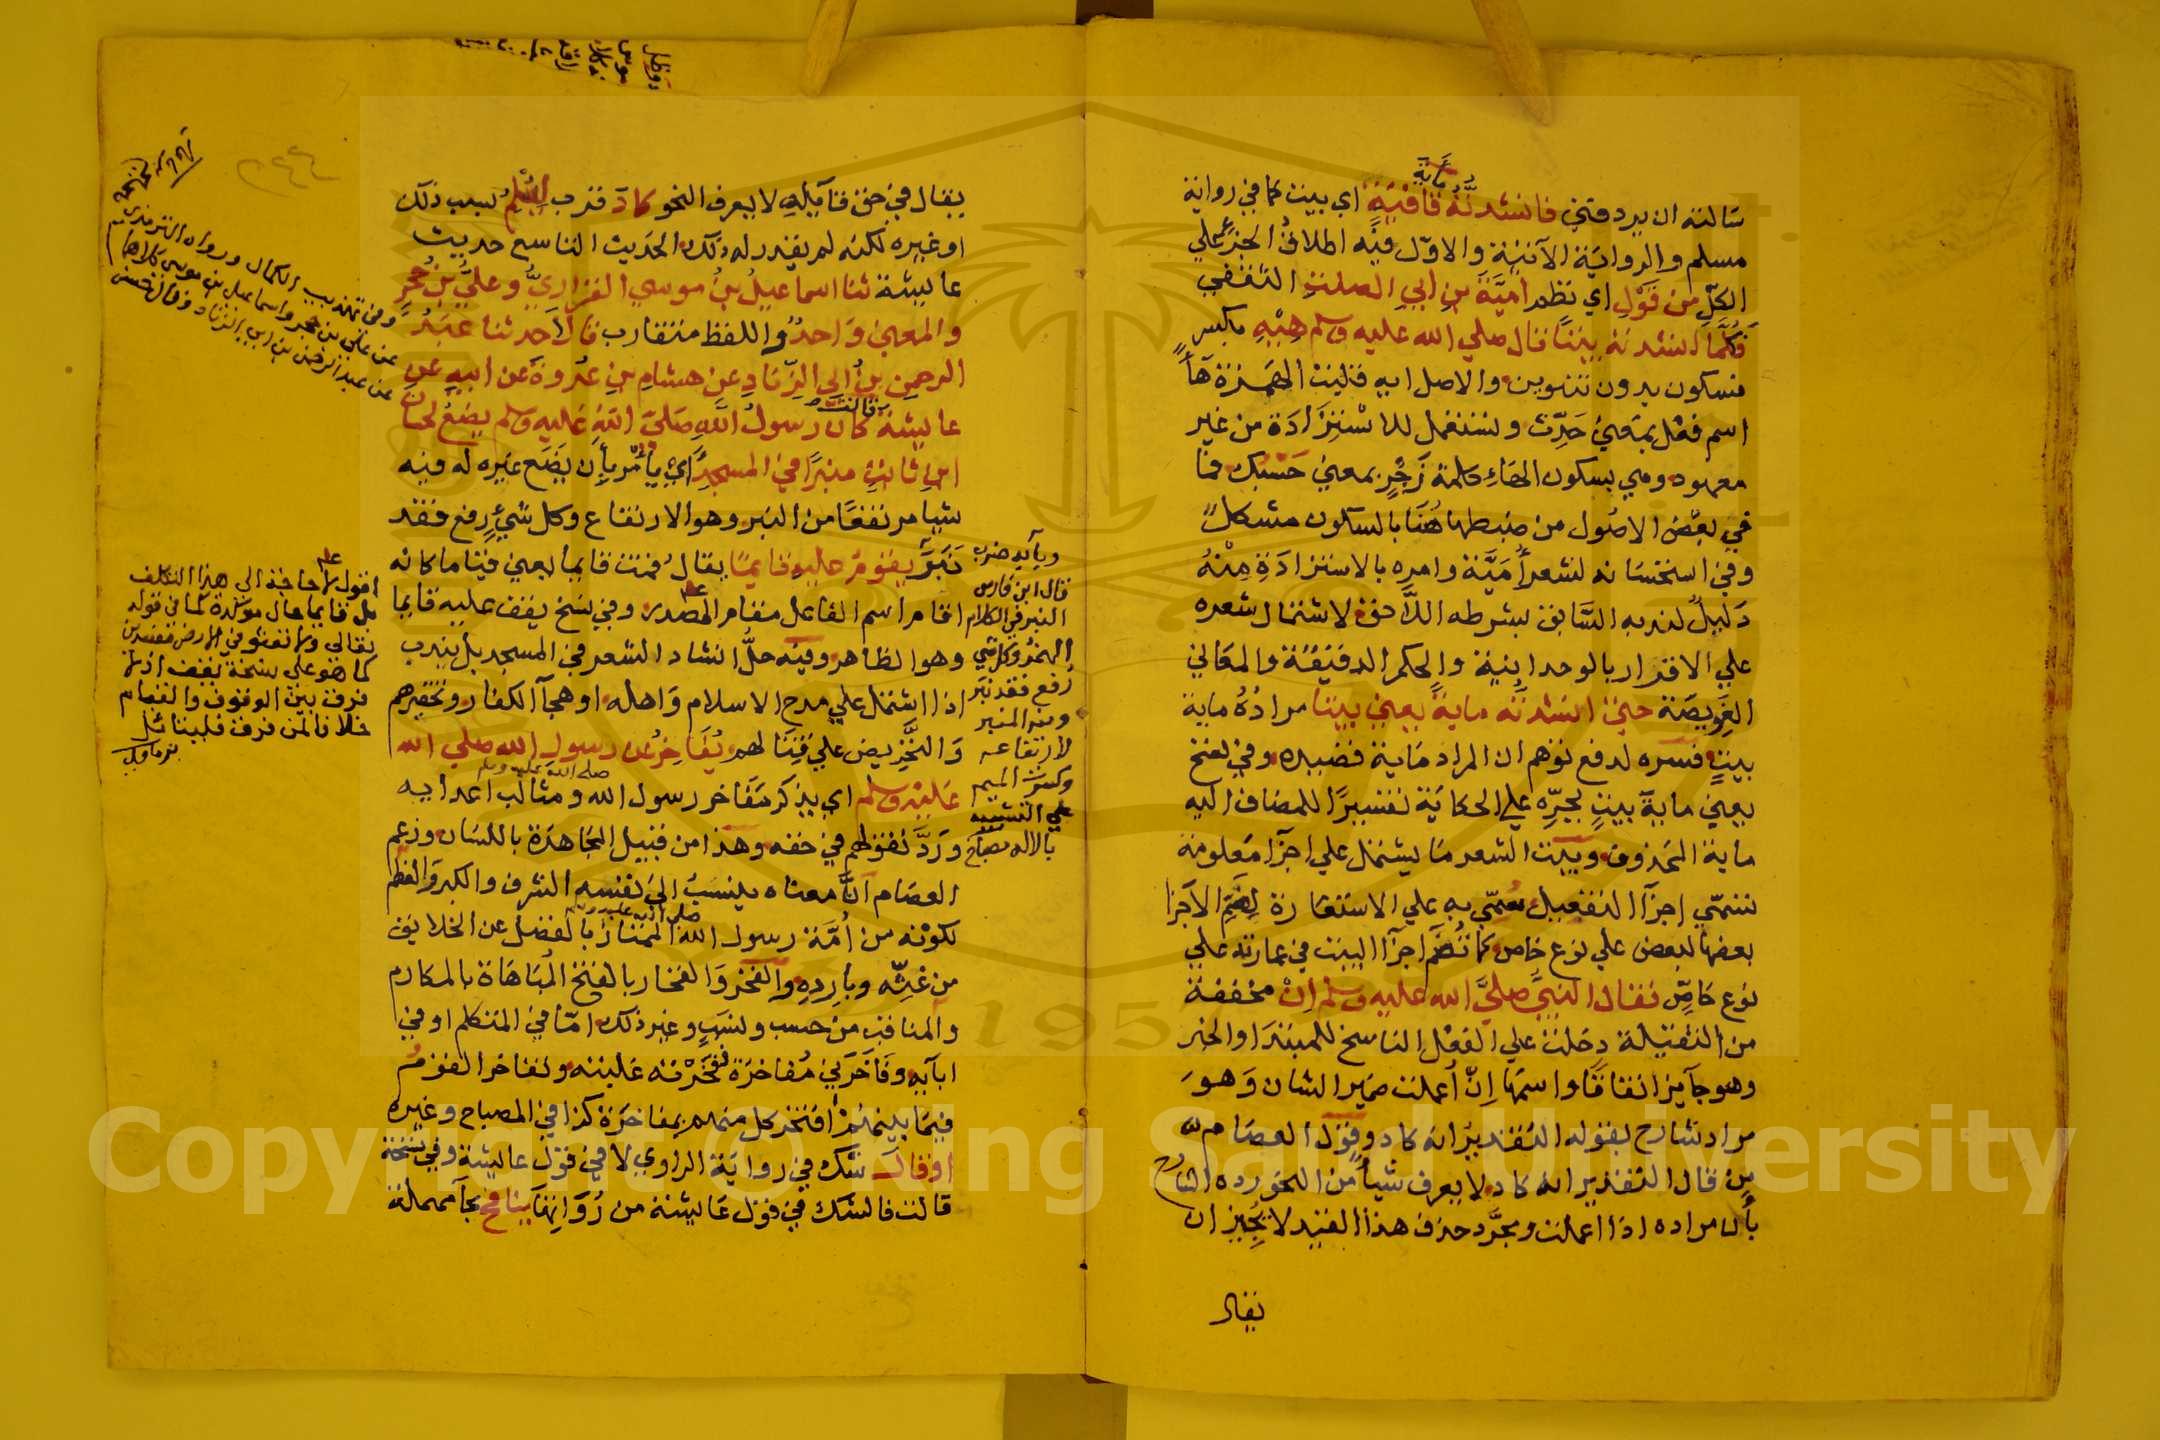 مائة
سالته ان يردفني فانشدته قافية اي بيت كما في رواية
مسلم والرواية الآتية والاول فيه اطلاق الجزء علي
الكل من قول اي نظم امية بن ابي الصلت الثقفي
كلما انشدته بيتا قال صلي الله عليه وسلم هيه بكسر
فسكون بدون تنوين والاصل ايه قلبت الهمزة هاء
اسم فعل بمعني حدث وتستعمل للاستزادة من غير
معهود وهي بسكون الهاء كلمة زجر بمعني حسبك فما
في بعض الاصول من ضبطها هنا بالسكون مشكل
وفي استحسانه لشعر أمية وامره بالاستزادة منه
دليل لندبه السابق بشرطه اللاحق لاشتمال شعره
علي الاقرار بالوحدانية والحكم الدقيقة والمعاني
العويصة حتي انشدته ماية يعني بيتا مراده ماية
بيت فسره لدفع توهم ان المراد ماية قصيده وفي نسخ
يعني ماية بيت بجره علي الحكاية تفسيرا للمضاف اليه
ماية المحذوف وبيت الشعر ما يشتمل علي اجزا معلومة
تسمي اجزآ التفعيل سمي به علي الاستعارة لضم الاجزا
بعضها لبعض علي نوع خاص كما تضم اجزآ البيت في عمارته علي
نوع خاص فقال النبي صلي الله عليه وسلم ان مخففة
من الثقيلة دخلت علي الفعل الناسخ للمبتدا والخبر
وهو جايز اتفاقا واسمها ان أعملت ضمير الشان وهو
مراد شارح بقوله التقدير انه كاد وقول العصام
من قال التقدير انه كاد لا يعرف شيأ من النحو رده الشارح
بأن مراده اذا اعملت ومجرد حذف هذا القيد لا يجيز ان
يقال
يقال في حق قايله لا يعرف النحو كاد قرب ليسلم بسبب ذلك
او غيره لكنه لم يقدر له ذلك الحديث التاسع حديث
عايشة ثنا اسماعيل بن موسي الفزاري وعلي بن حجر
والمعني واحد واللفظ متقارب قالا حدثنا عبد
الرحمن بن ابي الزناد عن هشام بن عروة عن ابيه عن
عايشة قالت كان رسول الله صلي الله عليه وسلم يضع لحسان
ابن ثابت منبرا في المسجد اي يأمر بأن يضع غيره له فيه
شيا مرتفعا من النبر وهو الارتفاع وكل شئ رفع فقد
نبر يقوم عليه قايما يقال قمت قايما بمعني قياما كانه
اقام اسم الفاعل مقام المصدر وفي نسخ يقف عليه قايما
وهو الظاهر وفيه حل انشاد الشعر في المسجد بل يندب
اذا اشتمل علي مدح الاسلام واهله او هجآ الكفار وتحقيرهم
والتحريض علي قتالهم يفاخر عن رسول الله صلي الله
عليه وسلم اي يذكر مفاخر رسول الله صلي الله عليه وسلم ومثالب اعدايه
ورد تقولهم في حقه وهذا من قبيل المجاهدة باللسان وزعم
العصام ان معناه ينسب الي نفسه الشرف والكبر والعظم
لكونه من أمة رسول الله صلي الله عليه وسلم الممتاز بالفضل عن الخلايق
من غثه وبارده والفخر والفخار بالفتح المباهاة بالمكارم
والمناقب من حسب ونسب وغير ذلك امّا في المتكلم او في
ابآيه وفاخرني مفاخرة ففخرته غلبته وتفاخر القوم
فيما بينهم افتخر كل منهم بمفاخرة كذا في المصباح وغيره
او قال شك في رواية الراوي لا في قول عايشة وفي نسخة
قالت فالشك في قول عايشة من رواتها ينافح بحآ مهملة
وفي تهذيب الكمال ورواه الترمذي
عن علي بن حجر واسماعيل بن موسي كلاهما
عن عبد الرحمن بن ابي الزناد وقال حسن
اقول لا حاجة الي هذا التكلف
بل قايما حال مؤكدة كما في قوله
تعالي ولا تعثوا في الارض مفسدين
كما هو علي نسخة يقف اذ لا
فرق بين الوقوف والقيام
خلافا لمن فرق فليتامل
وبآيه ضرب
قال ابن فارس
النبر في الكلام
الهمز وكل شي
رفع فقد نبر
ومنه المنبر
لارتفاعه
وكسرت الميم
علي التشبيه
بالالة مصباح
1957
Copyright © King Saud University